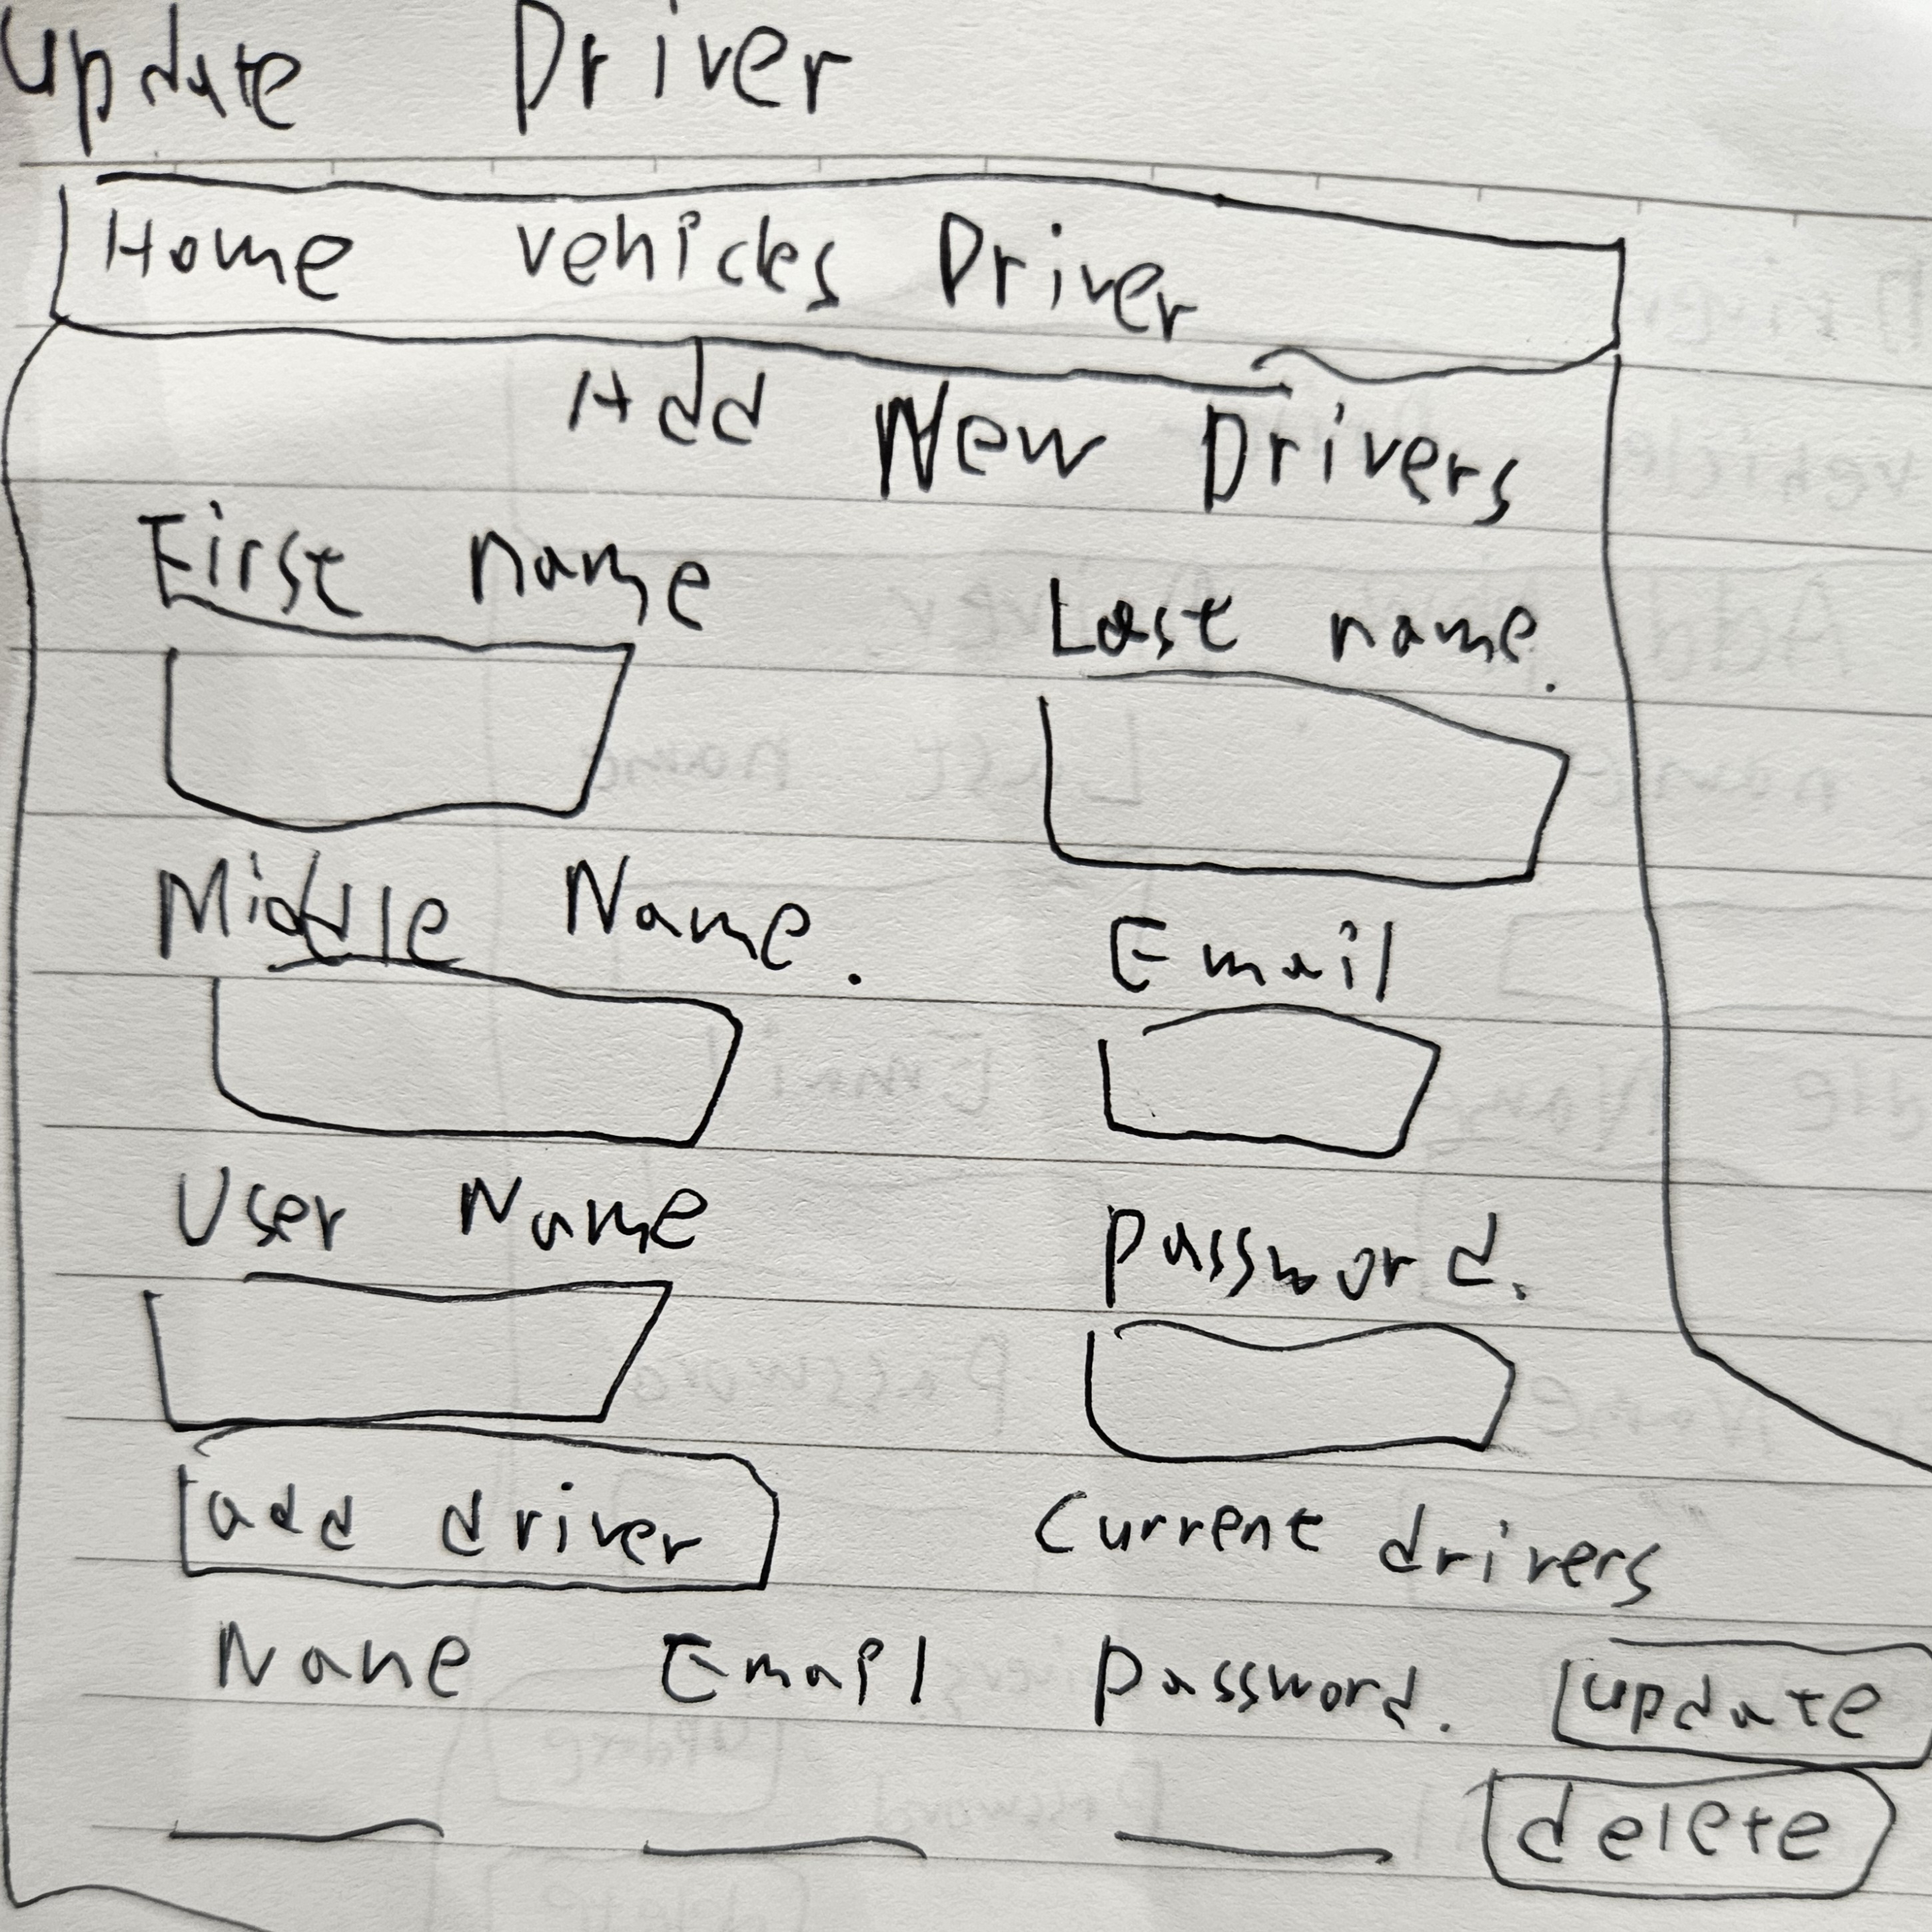 update Driver
Home vehicles Driver
Add New Drivers
First name
Last name.
Middle Name.
Email
User Name
password.
add driver
Current drivers
Name Email password. update
delete